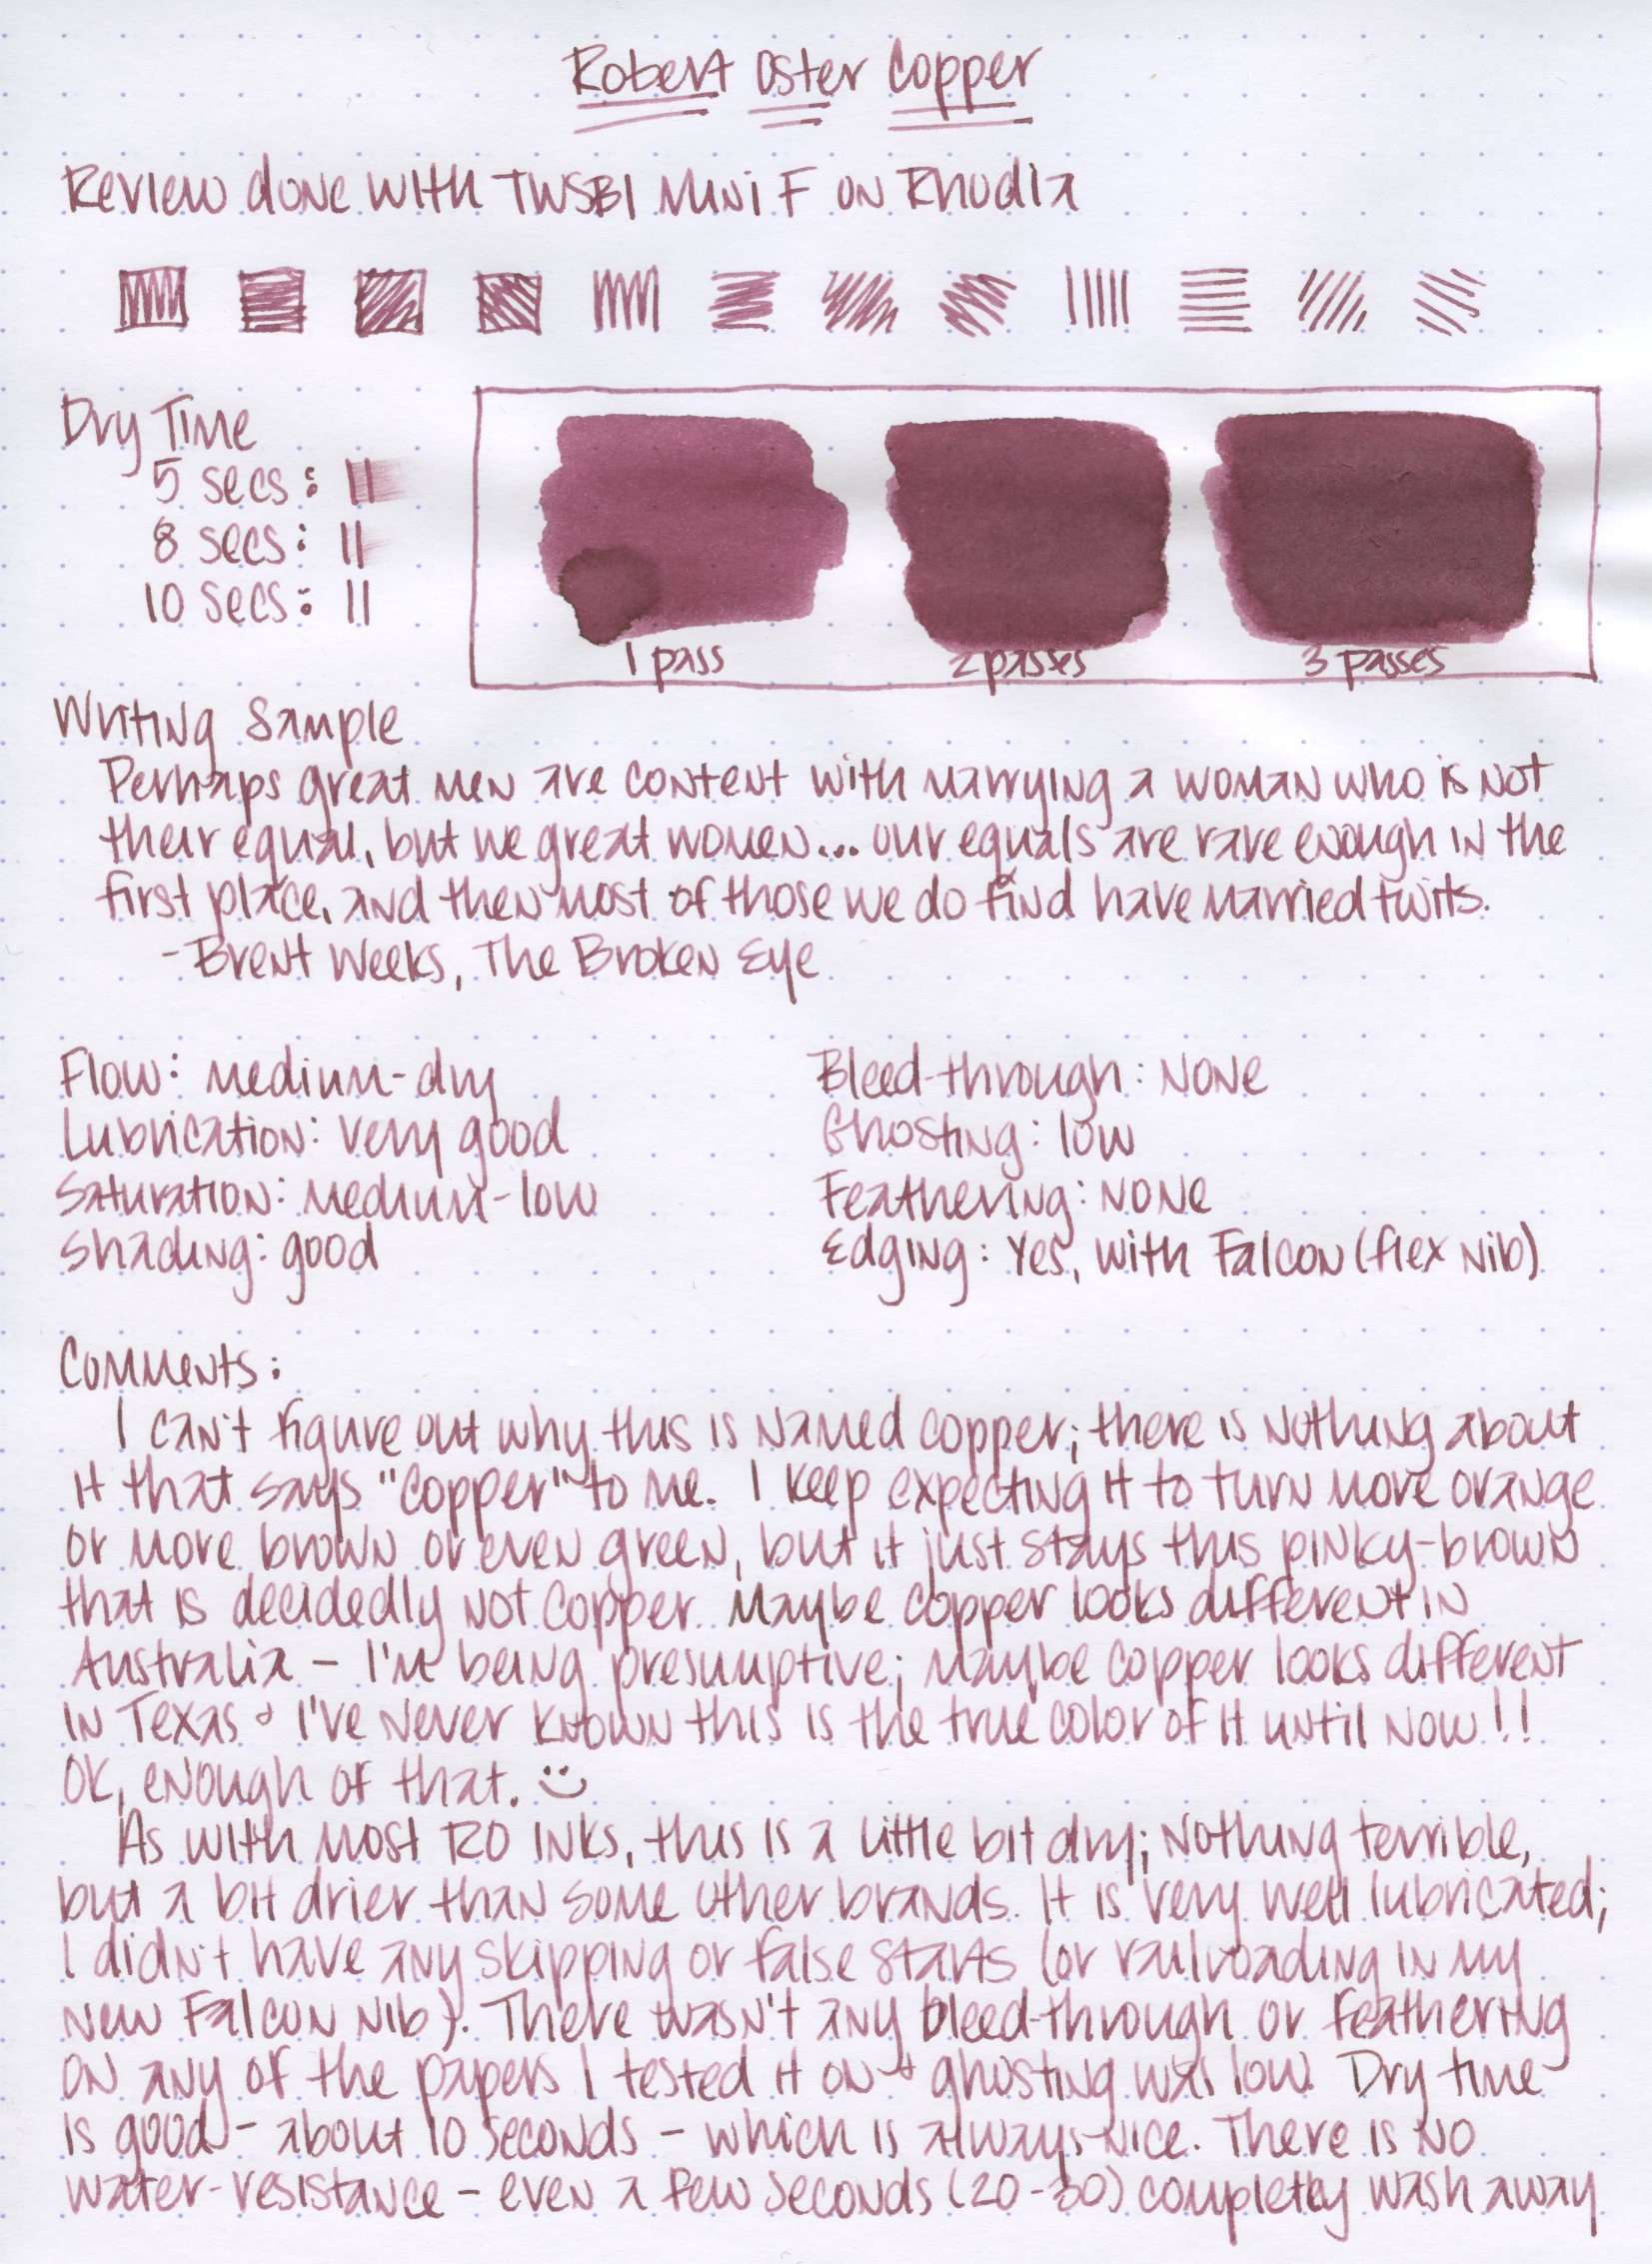 Robert Oster Copper
Review done with TWSBI Mini F on Rhodia
Dry Time
5 secs:
8 secs:
10 secs:
1 pass 2 passes 3 passes
Writing Sample
Perhaps great men are content with marrying a woman who is not
their equal, but we great women... our equals are rare enough in the
first place, and then most of those we do find have married twits.
- Brent Weeks, The Broken Eye
Flow: medium-dry
Lubrication: very good
Saturation: medium-low
Shading: good
Bleed-through: none
Ghosting: low
Feathering: none
Edging: yes, with Falcon (flex nib)
Comments:
I can't figure out why this is named copper; there is nothing about
it that says "copper" to me. I keep expecting it to turn more orange
or more brown or even green, but it just stays this pinky-brown
that is decidedly not copper. Maybe copper looks different in
Australia - I'm being presumptive; maybe copper looks different
in Texas & I've never known this is the true color of it until now!!
OK, enough of that. :)
As with most RO inks, this is a little bit dry; nothing terrible,
but a bit drier than some other brands. It is very well lubricated;
I didn't have any skipping or false starts (or railroading in my
new Falcon nib). There wasn't any bleed-through or feathering
on any of the papers I tested it on & ghosting was low. Dry time
is good - about 10 seconds - which is always nice. There is no
water-resistance - even a few seconds (20-30) completely wash away